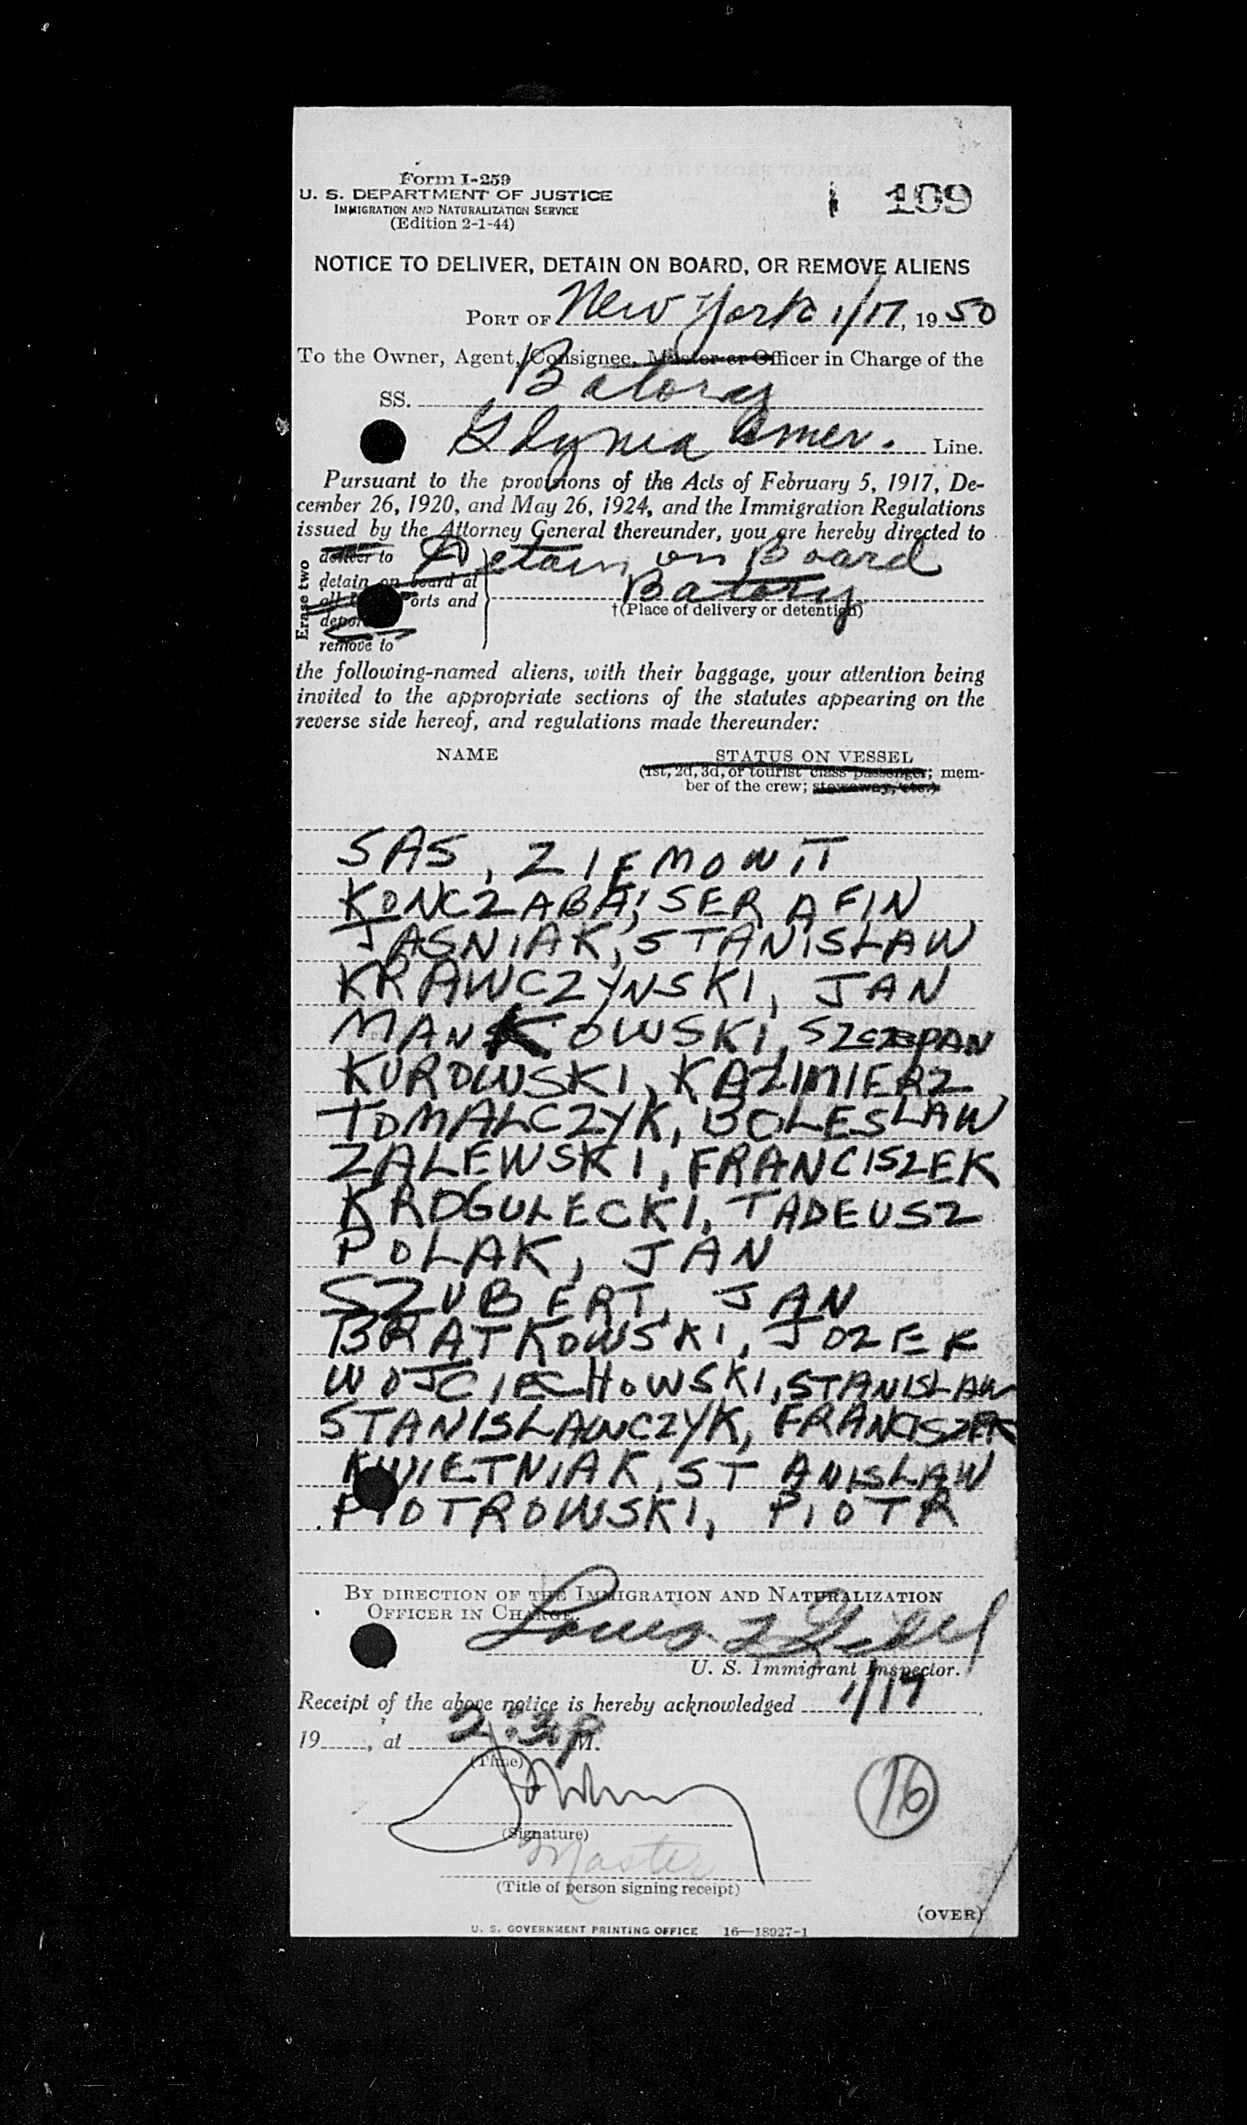 Form I-259
U. S. DEPARTMENT OF JUSTICE
IMMIGRATION AND NATURALIZATION SERVICE
(Edition 2-1-44)
109
NOTICE TO DELIVER, DETAIN ON BOARD, OR REMOVE ALIENS
PORT OF New York 1/17, 1950
To the Owner, Agent, Consignee, Master or Officer in Charge of the
SS. Batory
Gdynia Amer. Line.
Pursuant to the provisions of the Acts of February 5, 1917, De-
cember 26, 1920, and May 26, 1924, and the Immigration Regulations
issued by the Attorney General thereunder, you are hereby directed to
Erase two
deliver to
detain on board at
all ports and
remove to
Detain on Board
Batory
†(Place of delivery or detention)
the following-named aliens, with their baggage, your attention being
invited to the appropriate sections of the statutes appearing on the
reverse side hereof, and regulations made thereunder:
NAME
STATUS ON VESSEL
(1st, 2d, 3d, or tourist class passenger; mem-
ber of the crew; stowaway, etc.)
SAS, ZIEMOWIT
KONCZABA, SERAFIN
JASNIAK, STANISLAW
KRAWCZYNSKI, JAN
MANKOWSKI, SZCZEPAN
KUROWSKI, KAZIMIERZ
TOMALCZYK, BOLESLAW
ZALEWSKI, FRANCISZEK
KROGULECKI, TADEUSZ
POLAK, JAN
SZUBERT, JAN
BRATKOWSKI, JOZEF
WOJCIECHOWSKI, STANISLAW
STANISLAWCZYK, FRANCISZEK
KWIETNIAK, STANISLAW
PIOTROWSKI, PIOTR
BY DIRECTION OF THE IMMIGRATION AND NATURALIZATION
OFFICER IN CHARGE.
Louis
U. S. Immigrant Inspector.
Receipt of the above notice is hereby acknowledged 1/17
19 , at P M.
(Time)
(Signature)
16
Master
(Title of person signing receipt)
(OVER)
U. S. GOVERNMENT PRINTING OFFICE 16—18927-1